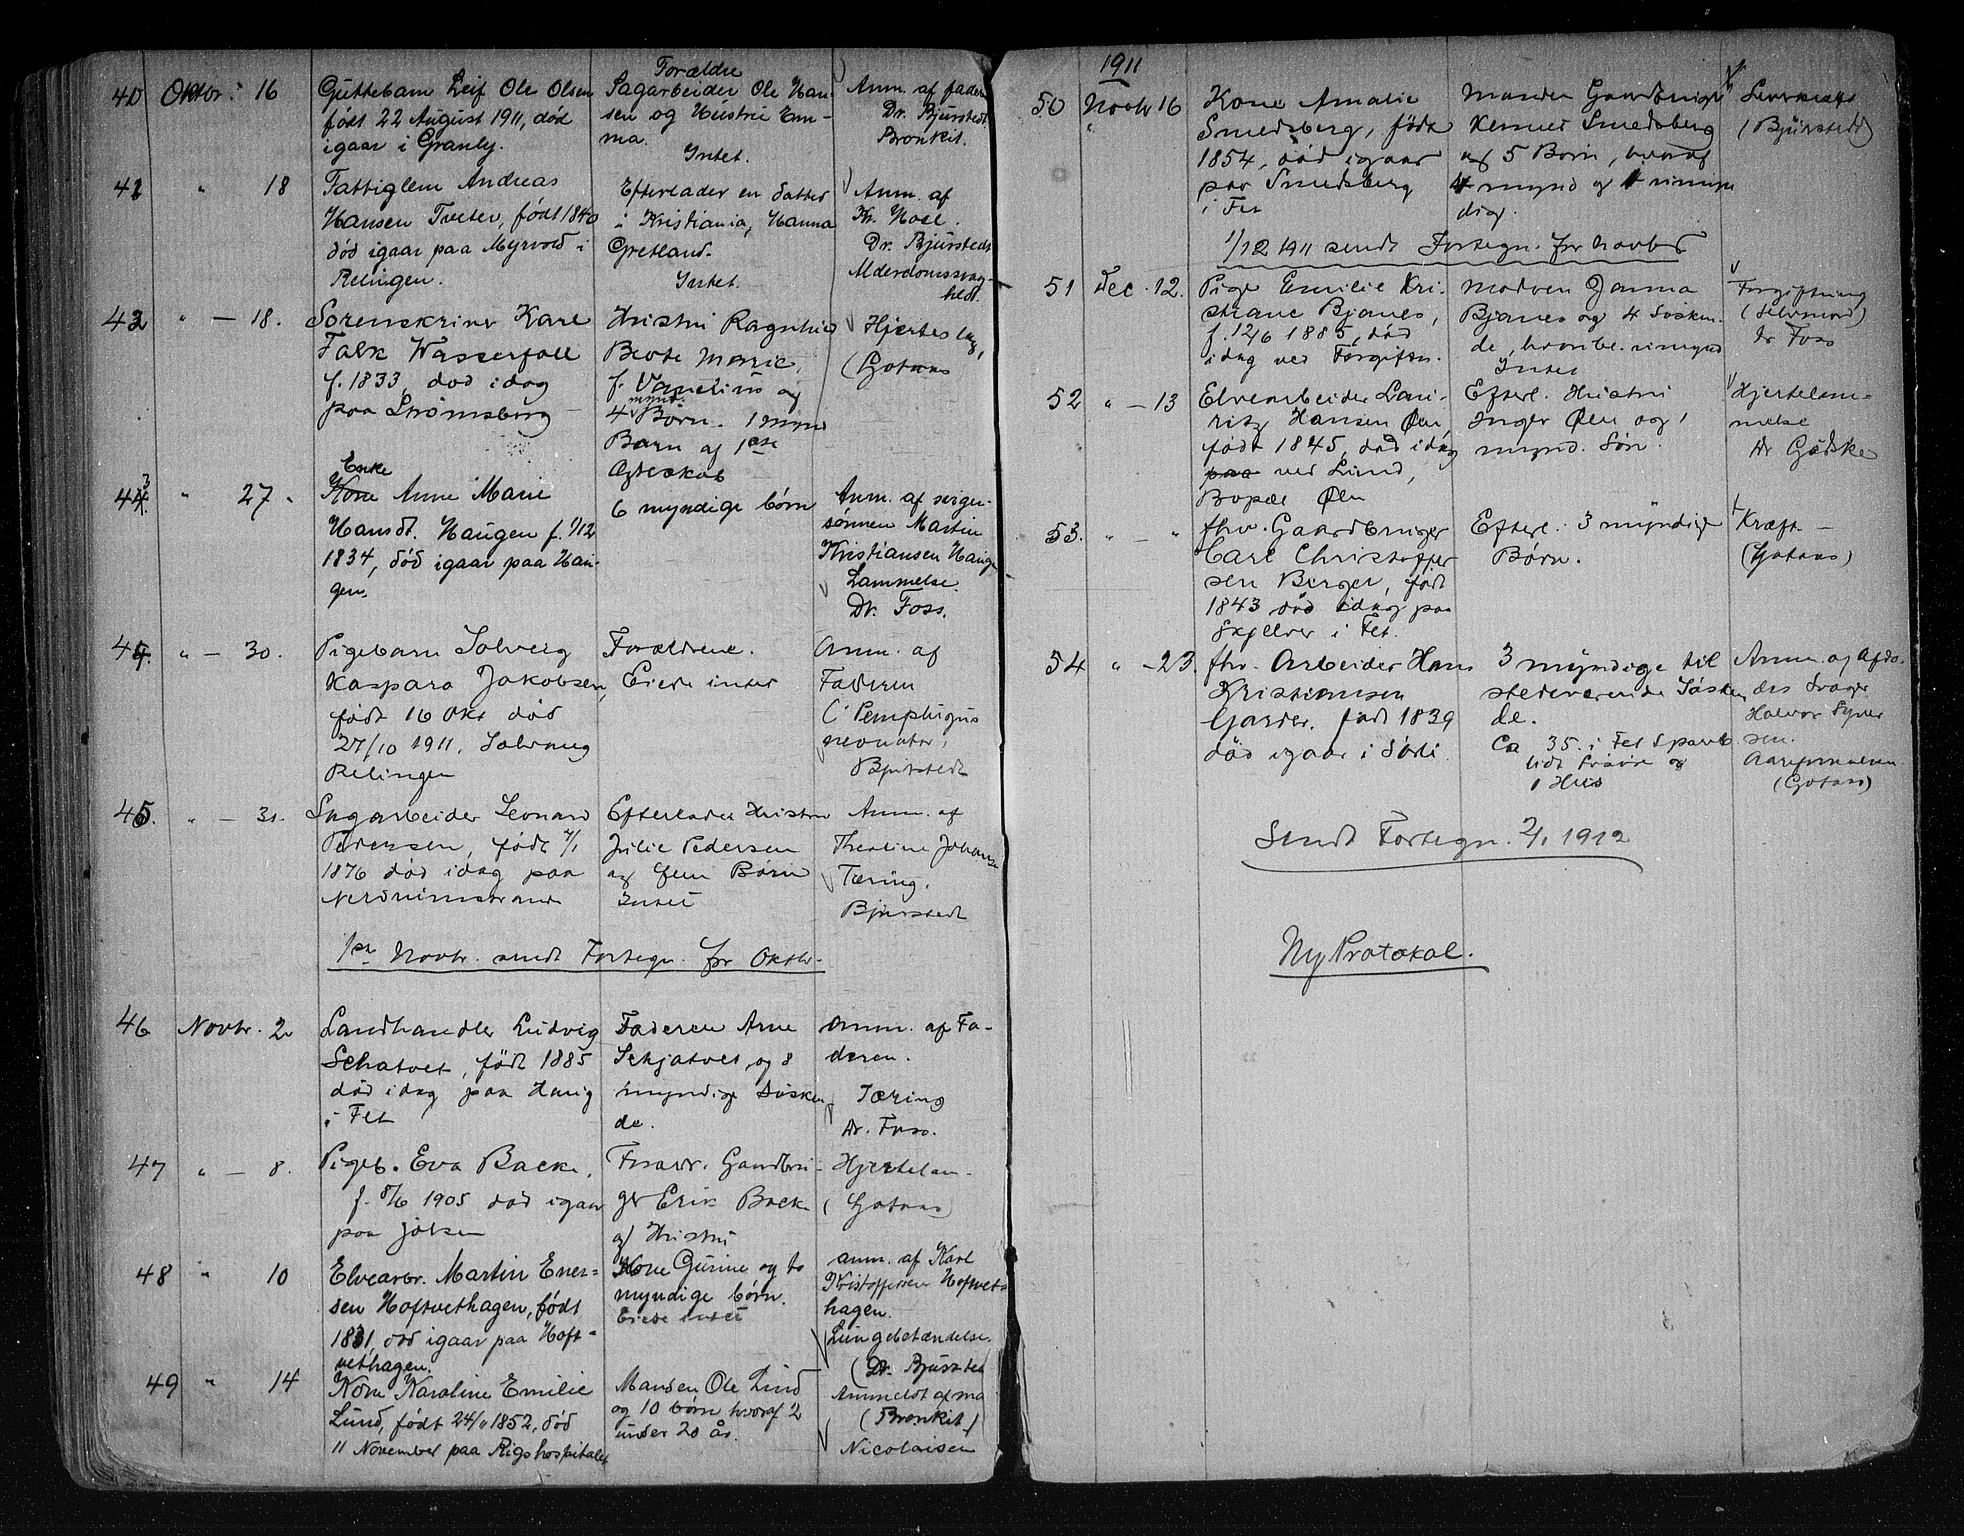 40 Oktbr. 16
Guttebarn Leif Ole Olsen
født 22 August 1911, død
igaar i Granly.
Forældre
Sagarbeider Ole Han-
sen og Hustru Em-
ma.
Intet.
Anm. af faderen
Dr. Bjurstedt
Bronkit.
41 " 18
Fattiglem Andreas
Hansen Tveter, født 1840
død igaar paa Myrvold i
Relingen.
Efterlader en datter
i Kristiania, Hanna
Gretland.
Intet.
Anm. af
Kr. Moe.
Dr. Bjurstedt
Alderdomssvag-
hed.
42 " — 18.
Sorenskriver Karl
Falk Wasserfall
f. 1833, død idag
paa Strømsberg
Hustru Ragnhild
Beate Marie,
f. og
mynd.
4 Børn. 1 mynd
Barn af 1ste
Egteskab
Hjerteslag,
(Gotaas
43 " 27.
Enke
Kone Anne Marie
Hansdt. Haugen f. 1/12
1834, død igaar paa Hau-
gen.
6 myndige børn
Anm. af sviger-
sønnen Martin
Kristiansen Haugen
Lammelse.
Dr. Foss.
44. " — 30.
Pigebarn Solveig
Kaspara Jakobsen,
født 16 Okt død
27/10 1911. Solvang
Relingen
Forældrene.
Eiede intet
Anm. af
Faderen
Pemphigus
neonator.
Bjurstedt
45. " — 31.
Sagarbeider Leonard
Pedersen, født 4/1
1876 død idag paa
Nerdrumstrand
Efterlader Hustru
Julie Pedersen
og fem Børn
Intet
Anm. af
Thealine Johanse
Tæring.
Bjurstedt
1ste Novbr. sendt Fortegn. for Oktbr.
46 Novbr. 2
Landhandler Ludvig
Schatvet, født 1885
død idag paa Haug
i Fet
Faderen Arne
Schjatvet, og 8
myndige Søsken
de.
Anm. af Fa-
deren.
Tæring
Dr. Foss.
47 " — 8.
Pigeb. Eva Backe,
f. 8/6 1905 død igaar
paa Jølsen
Forældr. Gaardbru-
ger Erik Backe
og Hustru
Hjertelam-
(Gotaas)
48 " 10
Elvearbr. Martin Ener-
sen Hoftvethagen, født
1831, død igaar paa Hoft-
vethagen.
Kone Gurine og to
myndige børn.
Eiede intet
anm. af Karl
Kristoffersen Hoftvet-
hagen.
Lungebetændelse.
(Dr. Bjurstedt
49 " 14
Kone Karoline Emilie
Lund, født 24/11 1852, død
11 November paa Rigshospitalet
Manden Ole Lund
og 10 børn hvoraf 2
under 20 år.
Anmeldt af ma
(Bronkit)
Nicolaisen
1911
50 Novbr 16
Kone Amalie
Smedsberg, født
1854, død igaar
paa Smedsberg
i Fet
Manden Gaardbruger
Smedsberg
og 5 Børn, hvoraf
4 mynd og 1 umyn
dig.
(Bjurstedt)
1/12 1911 sendt Fortegn. for Novbr
51 Dec. 12.
Pige Emilie Kri-
stiane Bjanes,
f. 12/6 1885, død
idag ved Forgiftn.
Moderen Janna
Bjanes og 4 Søsken-
de, umynd
Intet
Forgiftning
(Selvmord)
Dr Foss
52 " — 13
Elvearbeider Lau-
ritz Hansen Øen,
født 1845, død idag
paa ved Lund,
Bopæl Øen
Efterl. Hustru
Inger Øen og 1
mynd. Søn.
Hjertelam-
melse
Dr Gidske
53. " — "
fhv. Gaardbruger
Carl Christoffer
sen Berger, født
1843 død idag paa
Skjelver i Fet.
Efterl. 3 myndige
Børn.
Kræft —
(Gotaas)
54 " — 23.
fhv. Arbeider Hans
Kristiansen
Garder. født 1839
død igaar i Sørli
3 myndige til
stedeværende Søsken
de.
Ca 35. i Fet Spareb
lidt og
1 Hus
Anm. af Afdø-
des Svoger
Halvor Syver
sen.
(Gotaas)
Sendt Fortegn. 2/1 1912
Ny Protokol.